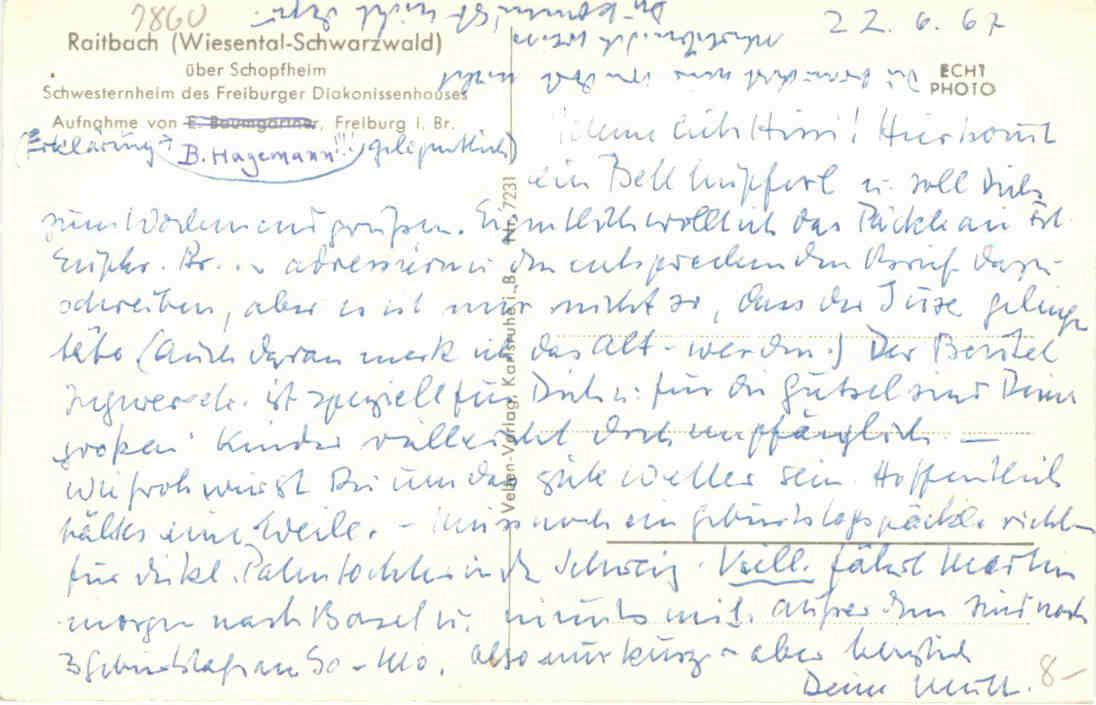 7860
22. 6. 67
Raitbach (Wiesental-Schwarzwald)
über Schopfheim
Schwesternheim des Freiburger Diakonissenhauses
Aufnahme von E. Baumgartner, Freiburg i. Br.
(Erklärung B. Hagemann!!! gelegentlich)
ECHT
PHOTO
Velten-Verlag, Karlsruhe i. B. Nr. 7231
Meine liebe ! Hier kommt
ein Betthupferl u. soll Dich
zum Wochenend grüßen. Eigentlich wollt ich das Päckle an
adressieren u. den entsprechenden Brief dazu
schreiben, aber es ist mir nicht so, dass der
täte (Auch daran merk ich das Alt-werden.) Der Beutel
Ingwer ist speziell für Dich u. für die Gutsel sind Deine
großen Kinder vielleicht doch empfänglich. —
Wie froh wirst Du um das gute Wetter sein. Hoffentlich
hält's eine Weile. – Muss noch ein Geburtstagspäckle richten
für in der Schweiz. Viell. fährt Martin
morgen nach Basel u. nimmt's mit. Außerdem sind noch
3 Geburtstage an So – Mo. Also nur kurz – aber herzlich
Deine Mutt.
8-
Du brauchst mir aber nicht
Du kommst nicht dazu